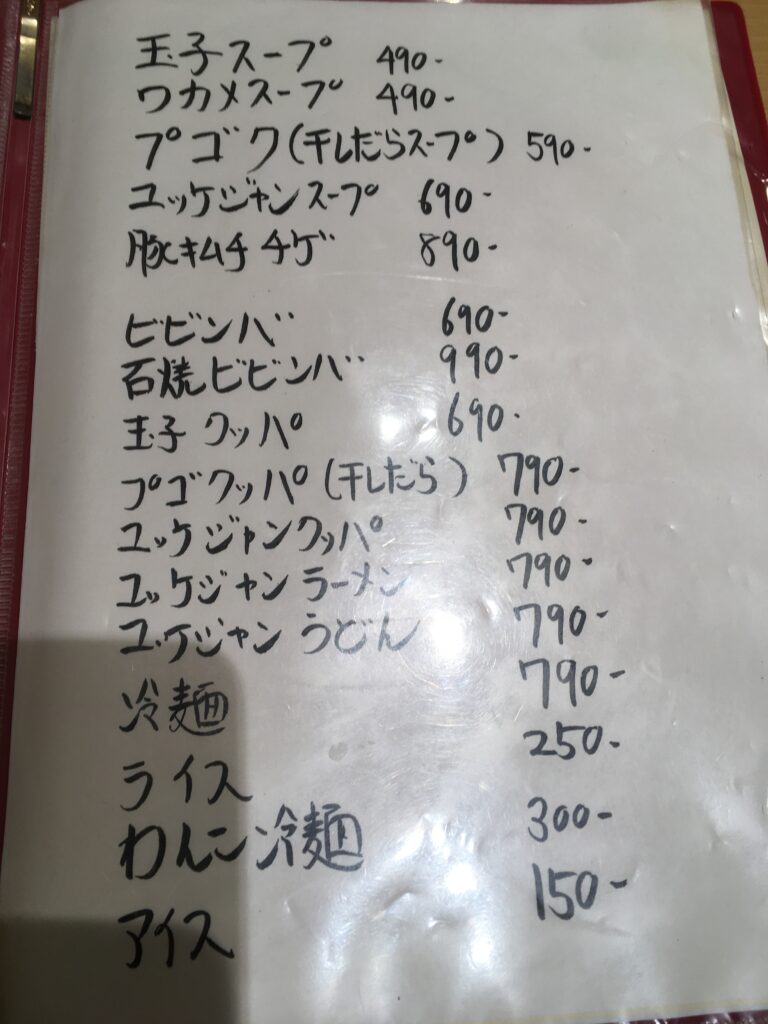 玉子スープ 490-
ワカメスープ 490-
プゴク(干しだらスープ) 590-
ユッケジャンスープ 690-
豚キムチチゲ 890-
ビビンバ 690-
石焼ビビンバ 990-
玉子クッパ 690-
プゴクッパ(干しだら) 790-
ユッケジャンクッパ 790-
ユッケジャンラーメン 790-
ユッケジャンうどん 790-
冷麺 790-
ライス 250-
わんこ冷麺 300-
アイス 150-